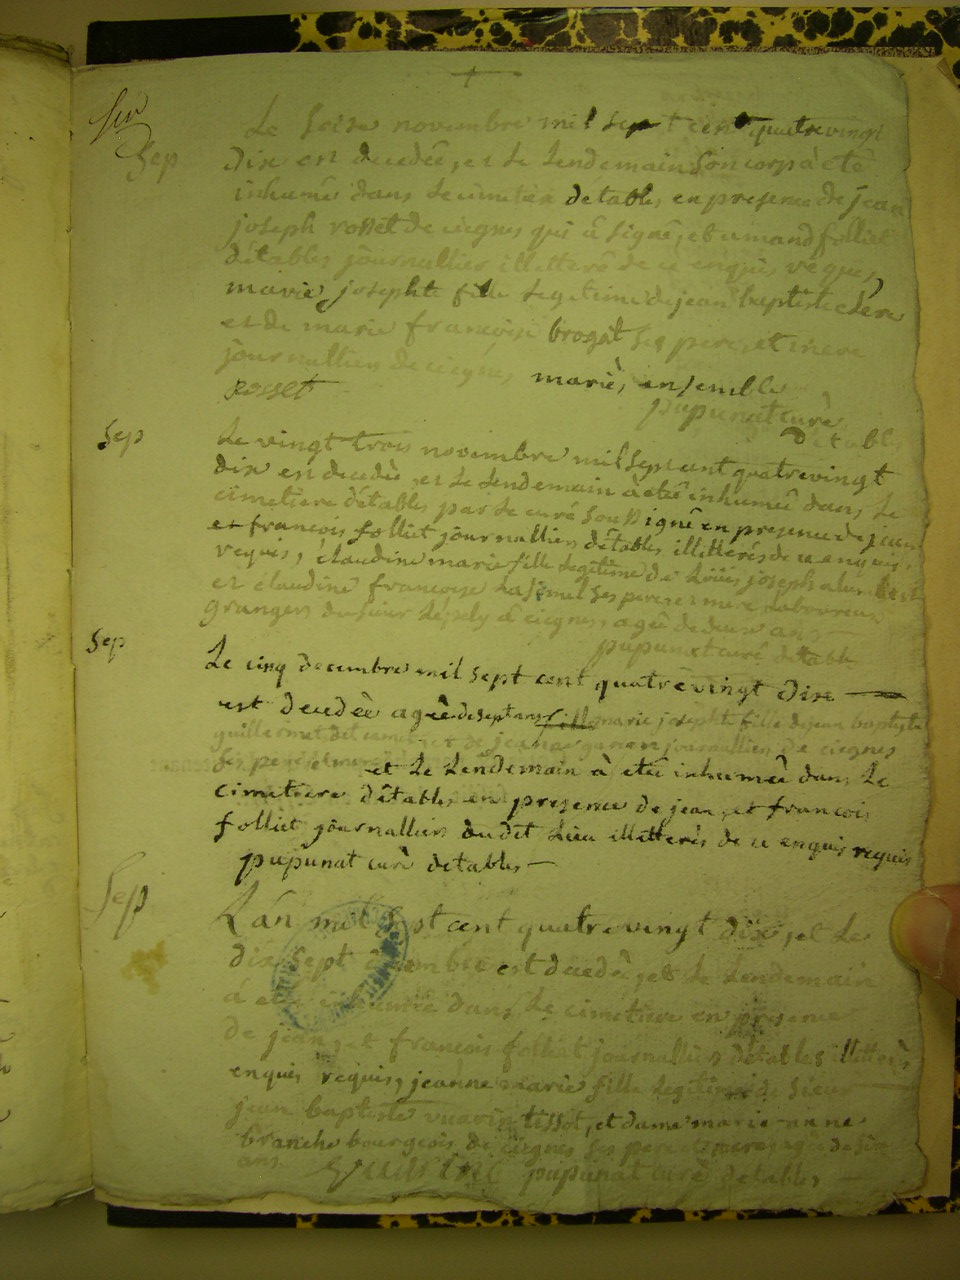 Sep
Le seise novembre mil sept cent quatre vingt
dix est decedée, et le lendemain son corp à eté
inhumé dans le cimetiere detables, en presence de jean
joseph rosset de ciegnes qui â signé, et amand folliet
détables journallier illetteré de ce enquis requis,
marie josephte fille legitime de jean baptiste
et de marie francoise brogat ses pere, et mere
journalliers de ciegnes, mariès ensemble
rosset pupunat curè
detables
Sep
Le vingt trois novembre mil sept cent quatre vingt
dix est decedèe, et le lendemain à etée inhumeê dans le
cimetiere détables par le curé soussigné en presence de jean
et francois folliet journalliers détables illitterés de ce enquis,
requis, claudine marie fille legitime de Loüis joseph
et claudine francoise ses pere et mere laboureurs
grangers du sieur â ciegnes, ageè de deux ans
pupunat curé detables
Sep
Le cinq decembre mil sept cent quatre vingt dix
est decedeè ageè de sept ans marie josephte fille de jean baptiste
guillermet dit et de jeanne journalliers de ciegnes
ses pere et mere et le lendemain à etée inhumeè dans le
cimetiere détables en presence de jean, et francois
folliet journalliers du dit lieu illetterès de ce enquis requis
pupunat curè detables
Sep
L'an mil sept cent quatre vingt dix, et le
dix sept decembre est decedè, et le lendemain
à eté inhumée dans le cimetiere en presence
de jean, et francois folliet journalliers détables illetterès
enquis requis, jeanne marie fille legitime de sieur
jean baptiste vuarin tissot, et dame marie anne
branche bourgeois de ciegnes ses pere et mere ageè de six
ans pupunat curè detables